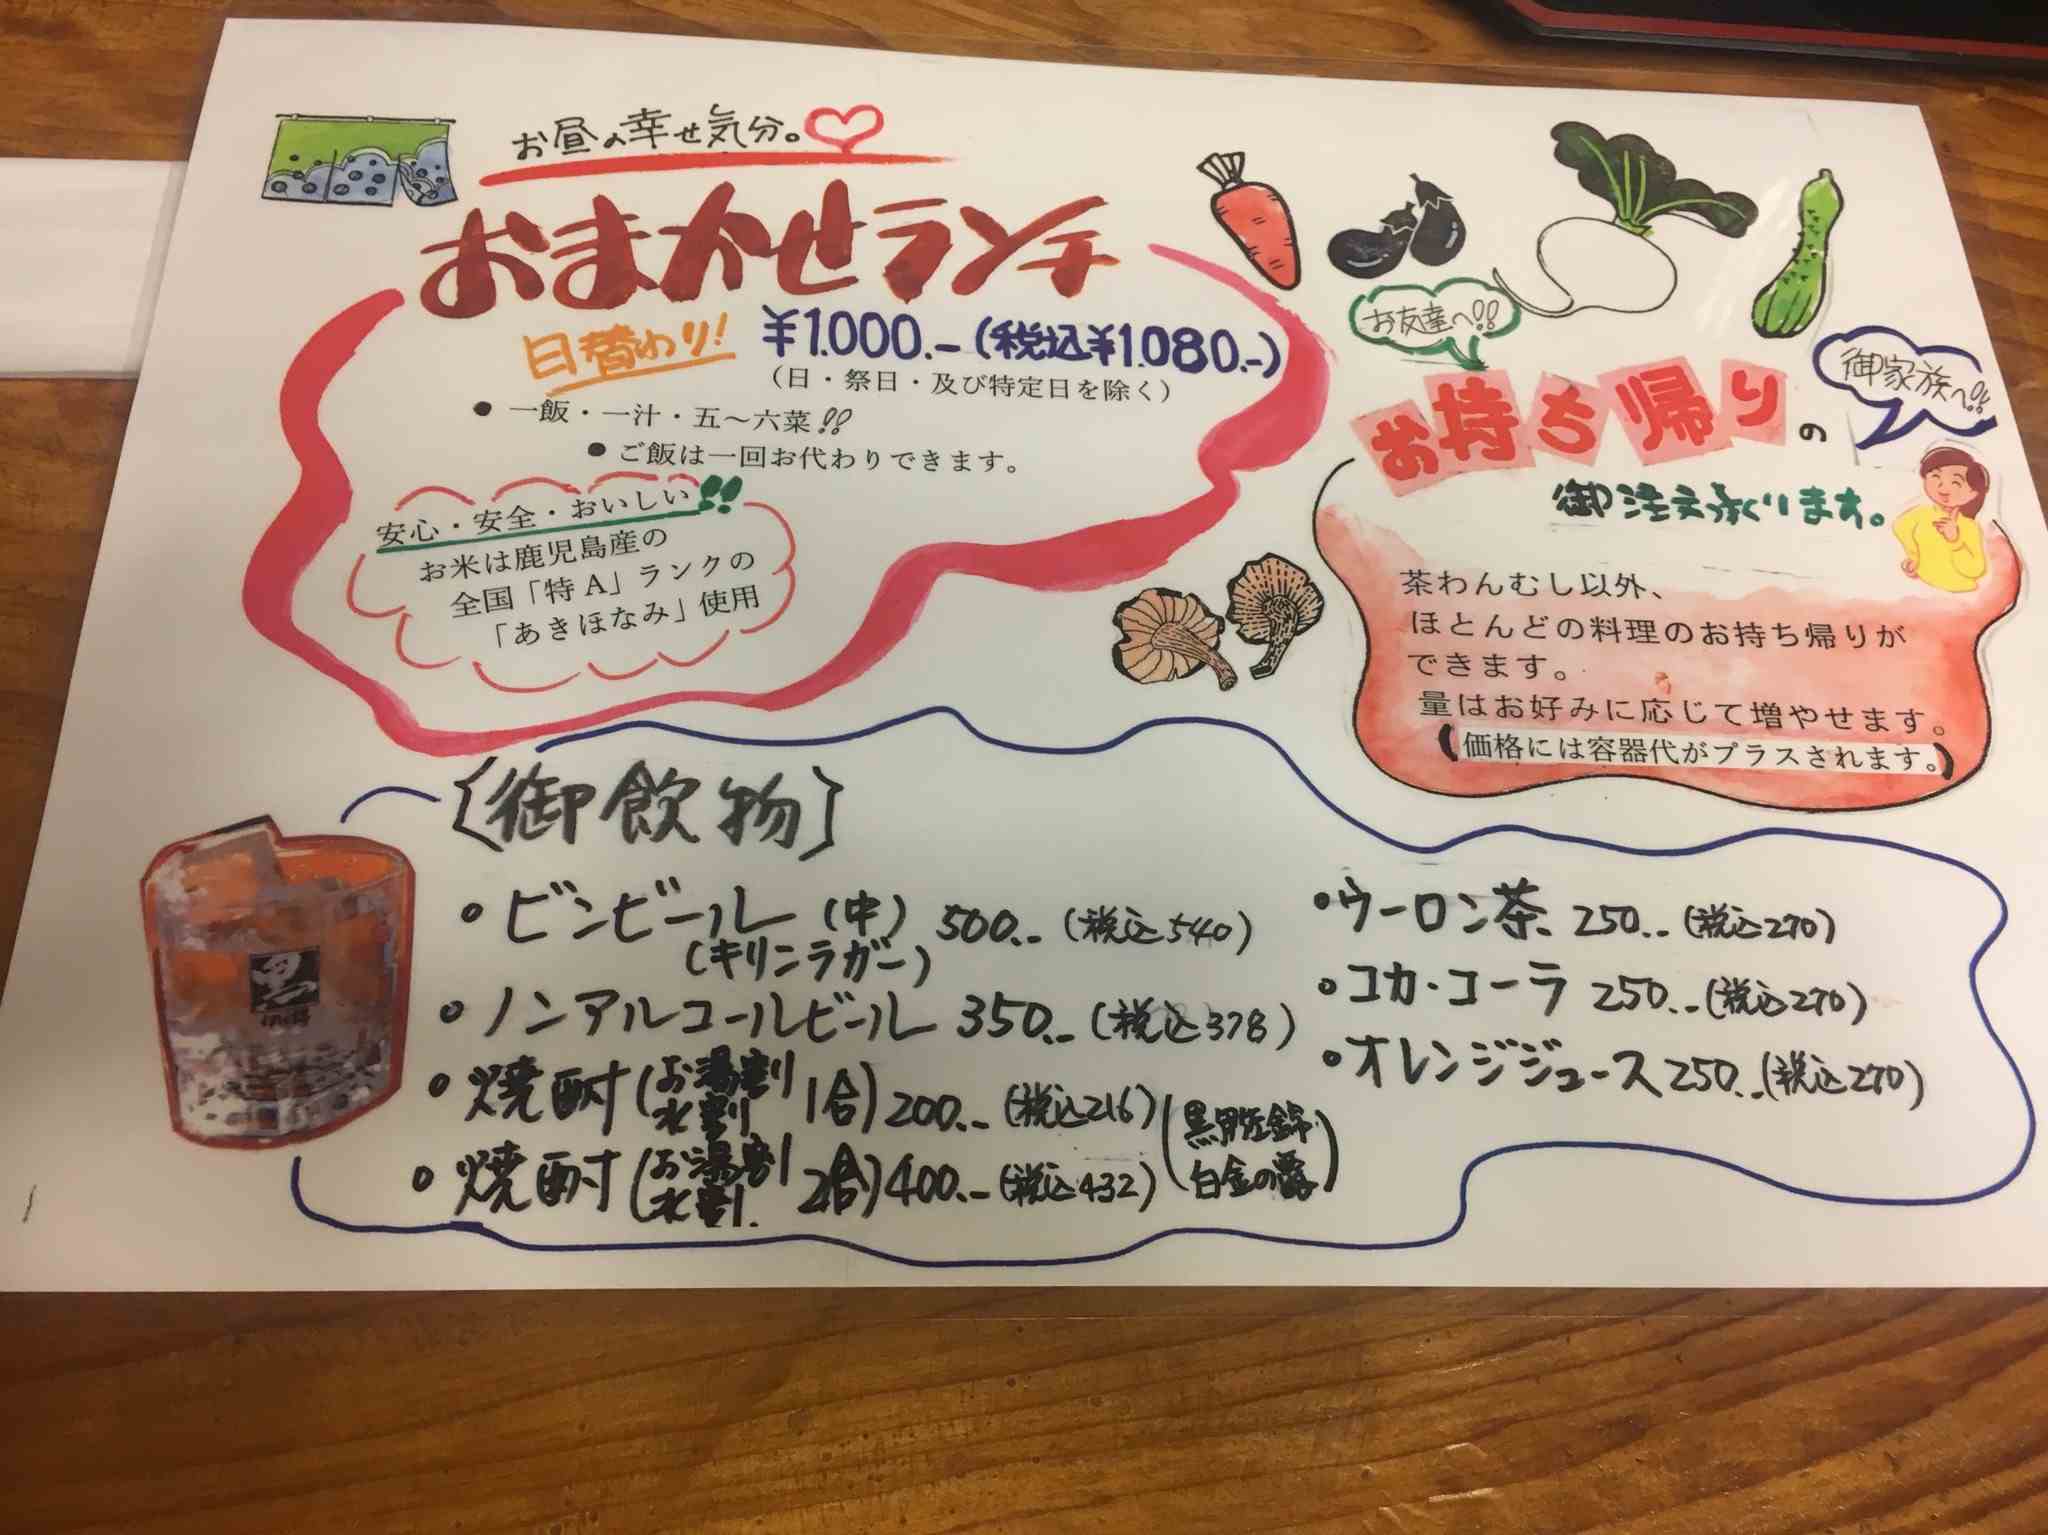 お昼の幸せ気分。
おまかせランチ
日替わり!
¥1.000.-(税込¥1.080.-)
（日・祭日・及び特定日を除く）
● 一飯・一汁・五～六菜!!
● ご飯は一回お代わりできます。
安心・安全・おいしい!!
お米は鹿児島産の
全国「特A」ランクの
「あきほなみ」使用
お友達へ!!
御家族へ!!
お持ち帰りの
御注文承ります。
茶わんむし以外、
ほとんどの料理のお持ち帰りが
できます。
量はお好みに応じて増やせます。
(価格には容器代がプラスされます。)
〔御飲物〕
• ビンビール (中) 500.- (税込540)
(キリンラガー)
• ノンアルコールビール 350.- (税込378)
• 焼酎(お湯割 水割 1合) 200.- (税込216)
• 焼酎(お湯割 水割. 2合) 400.- (税込432)
(黒伊佐錦. 白金の露)
• ウーロン茶 250.- (税込270)
• コカ・コーラ 250.- (税込270)
• オレンジジュース 250.- (税込270)
黒